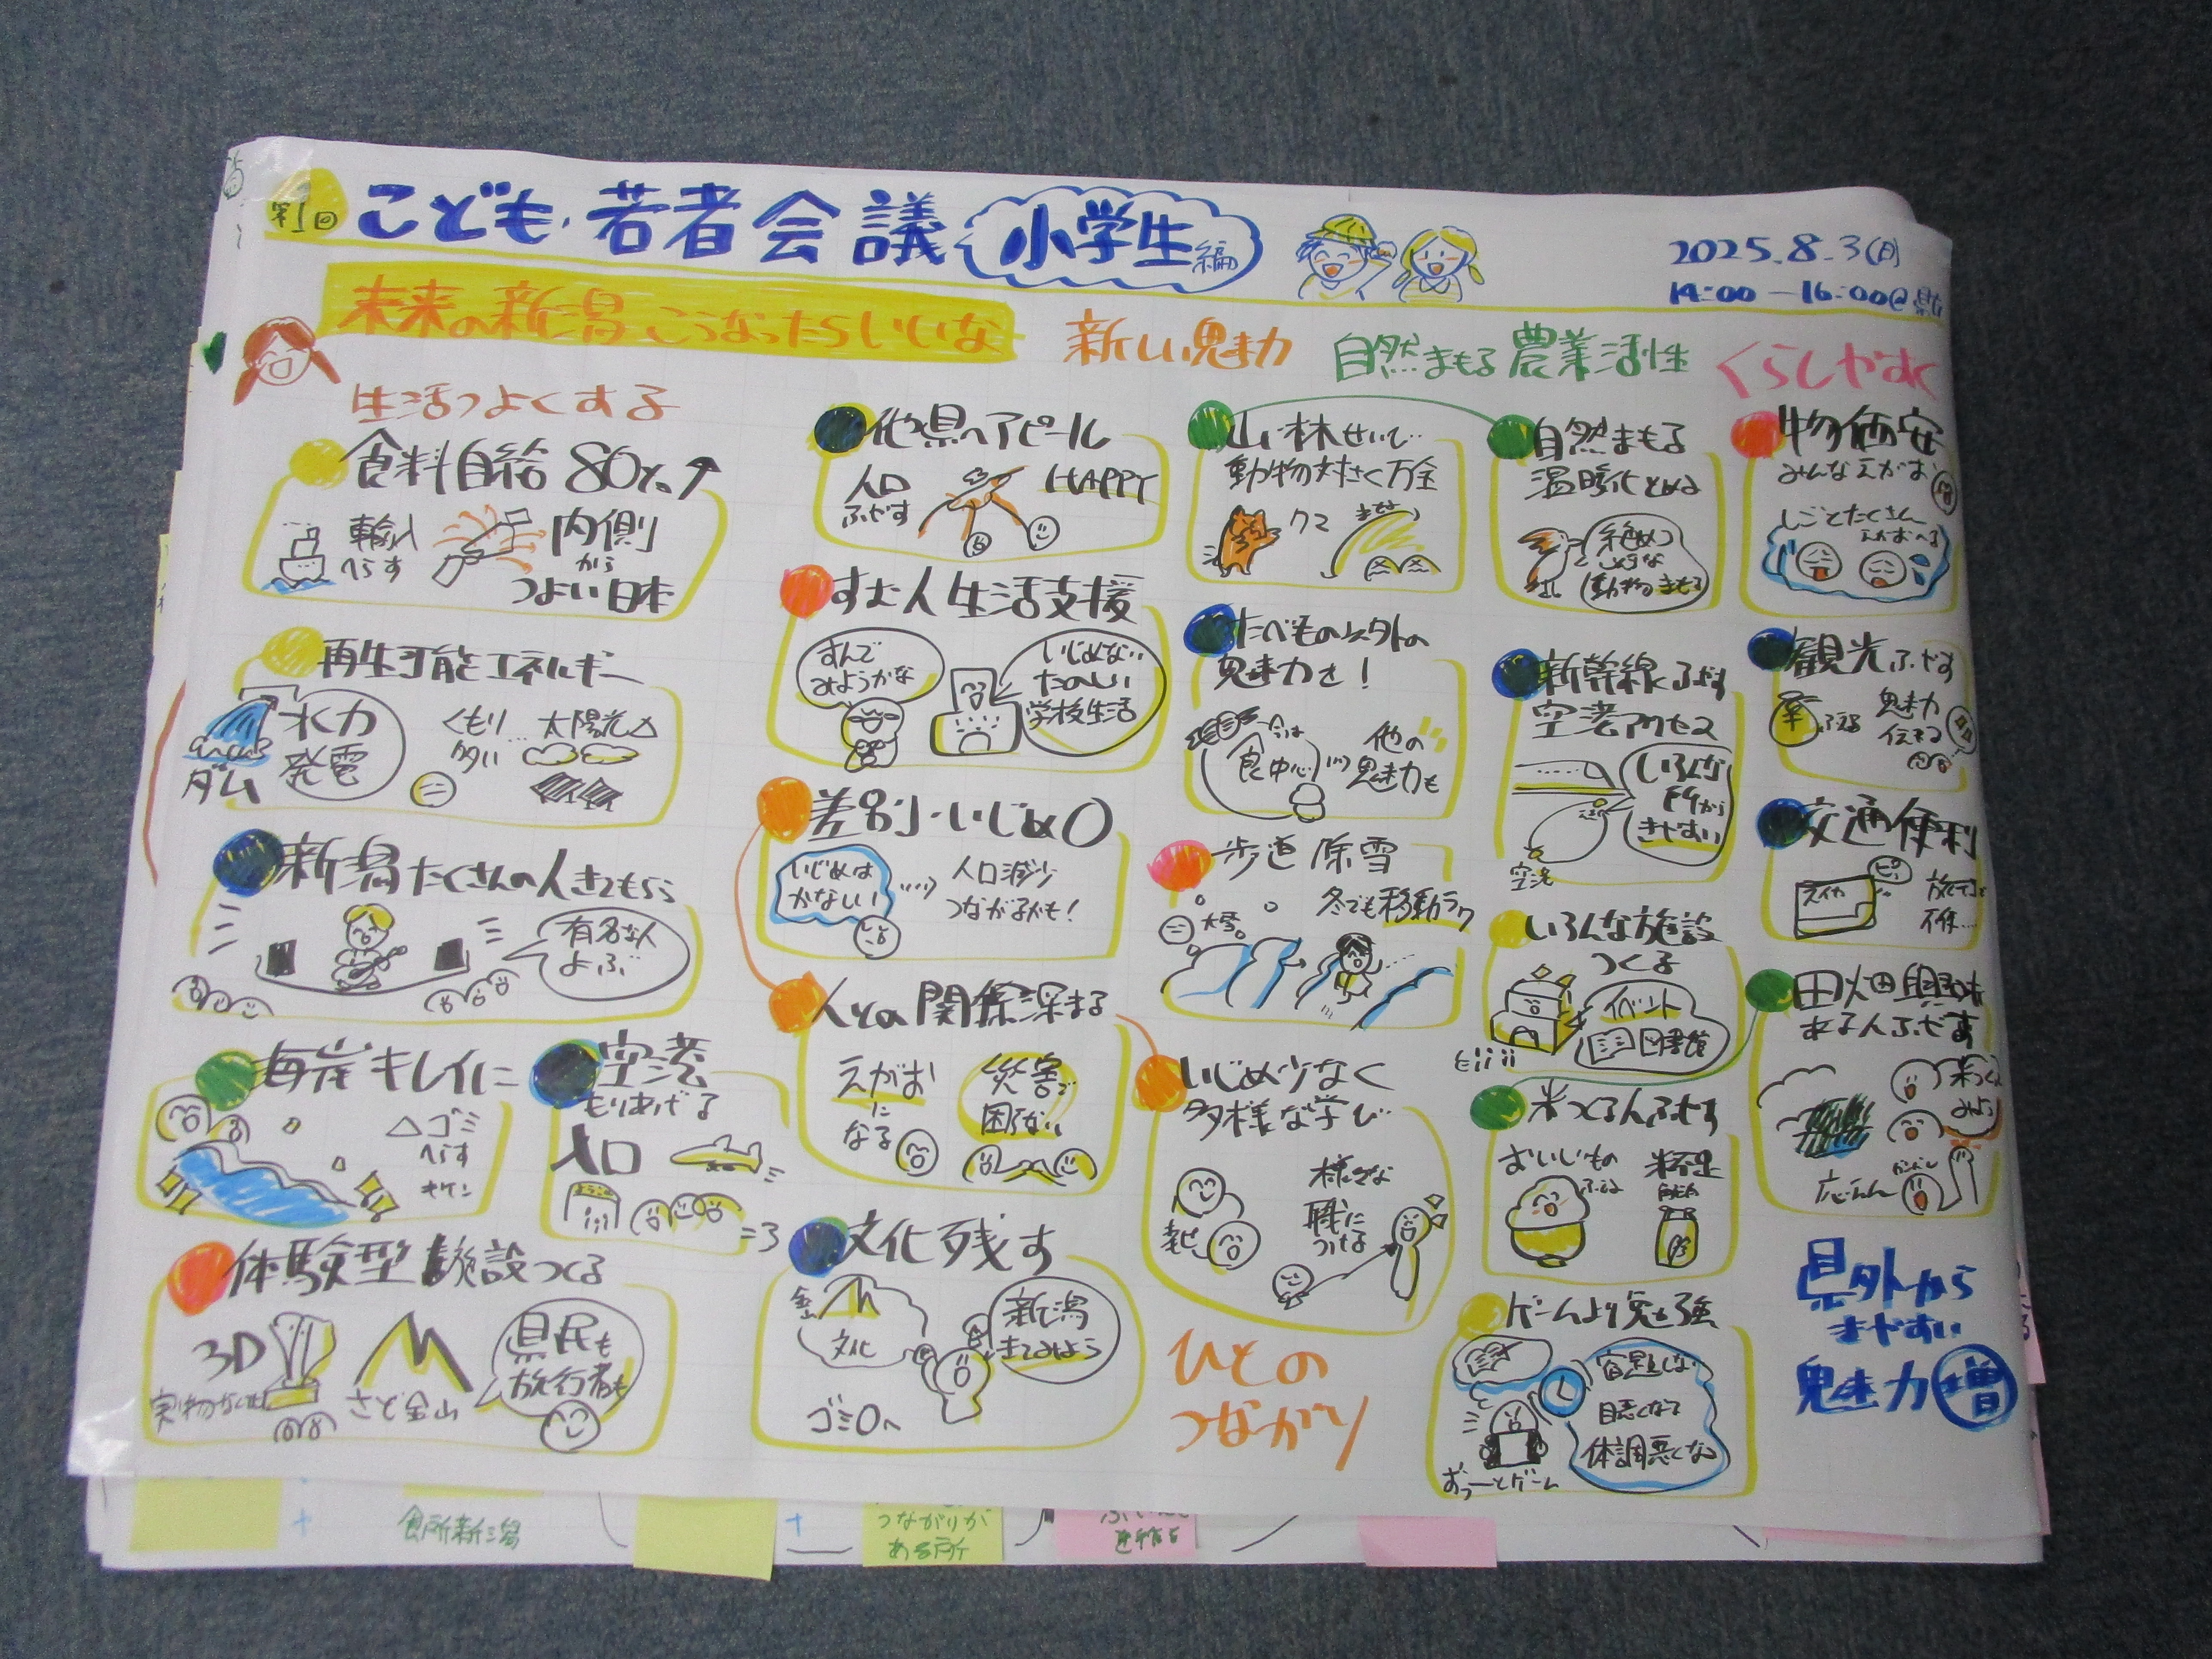 第1回 こども・若者会議 小学生編
2025.8.3(日)
14:00-16:00@県庁
未来の新潟こうなったらいいな
新しい魅力
自然まもる 農業活性
くらしやすく
生活つよくする
食料自給80%↑
輸入
へらす
内側
から
つよい日本
再生可能エネルギー
水力
発電
ダム
くもり
多い…
太陽光△
新潟たくさんの人きてもらう
有名な人
よぶ
海岸キレイに
△ゴミ
へらす
キケン
空港
もりあげる
人口
体験型施設つくる
3D
さど金山
県民も
旅行者も
他県へアピール
人口
ふやす
HAPPY
すむ人生活支援
すんで
みようかな
いじめない
たのしい
学校生活
差別・いじめ0
いじめは
かなしい
人口減少
つながるかも!
人との関係深まる
えがお
になる
災害で
困らない
文化残す
金山
文化
新潟
きてみよう
ゴミ0へ
山・林せいび
動物対さく万全
クマ
たべもの以外の
魅力を!
今は
食中心
他の
魅力も
歩道除雪
大雪。
冬でも移動ラク
いじめ少なく
多様な学び
様々な
職に
つける
ひとの
つながり
自然まもる
温暖化とめる
絶めつ
しそうな
動物まもる
新幹線ふやす
空港アクセス
いろんな
所から
きやすい
空港
いろんな施設
つくる
イベント
図書館
米つくる人ふやす
おいしいもの
ふえる
米不足
ゲームより勉強
宿題しない
目悪くなる
体調悪くなる
ずっーとゲーム
物価安
みんなえがお
しごとたくさん
えがおへる
観光ふやす
ふえる
魅力
伝える
交通便利
スイカ
ピッ
田畑興味
ある人ふやす
米つくる
みんな
県外から
きやすい
魅力増
食所新潟
つながりが
ある所